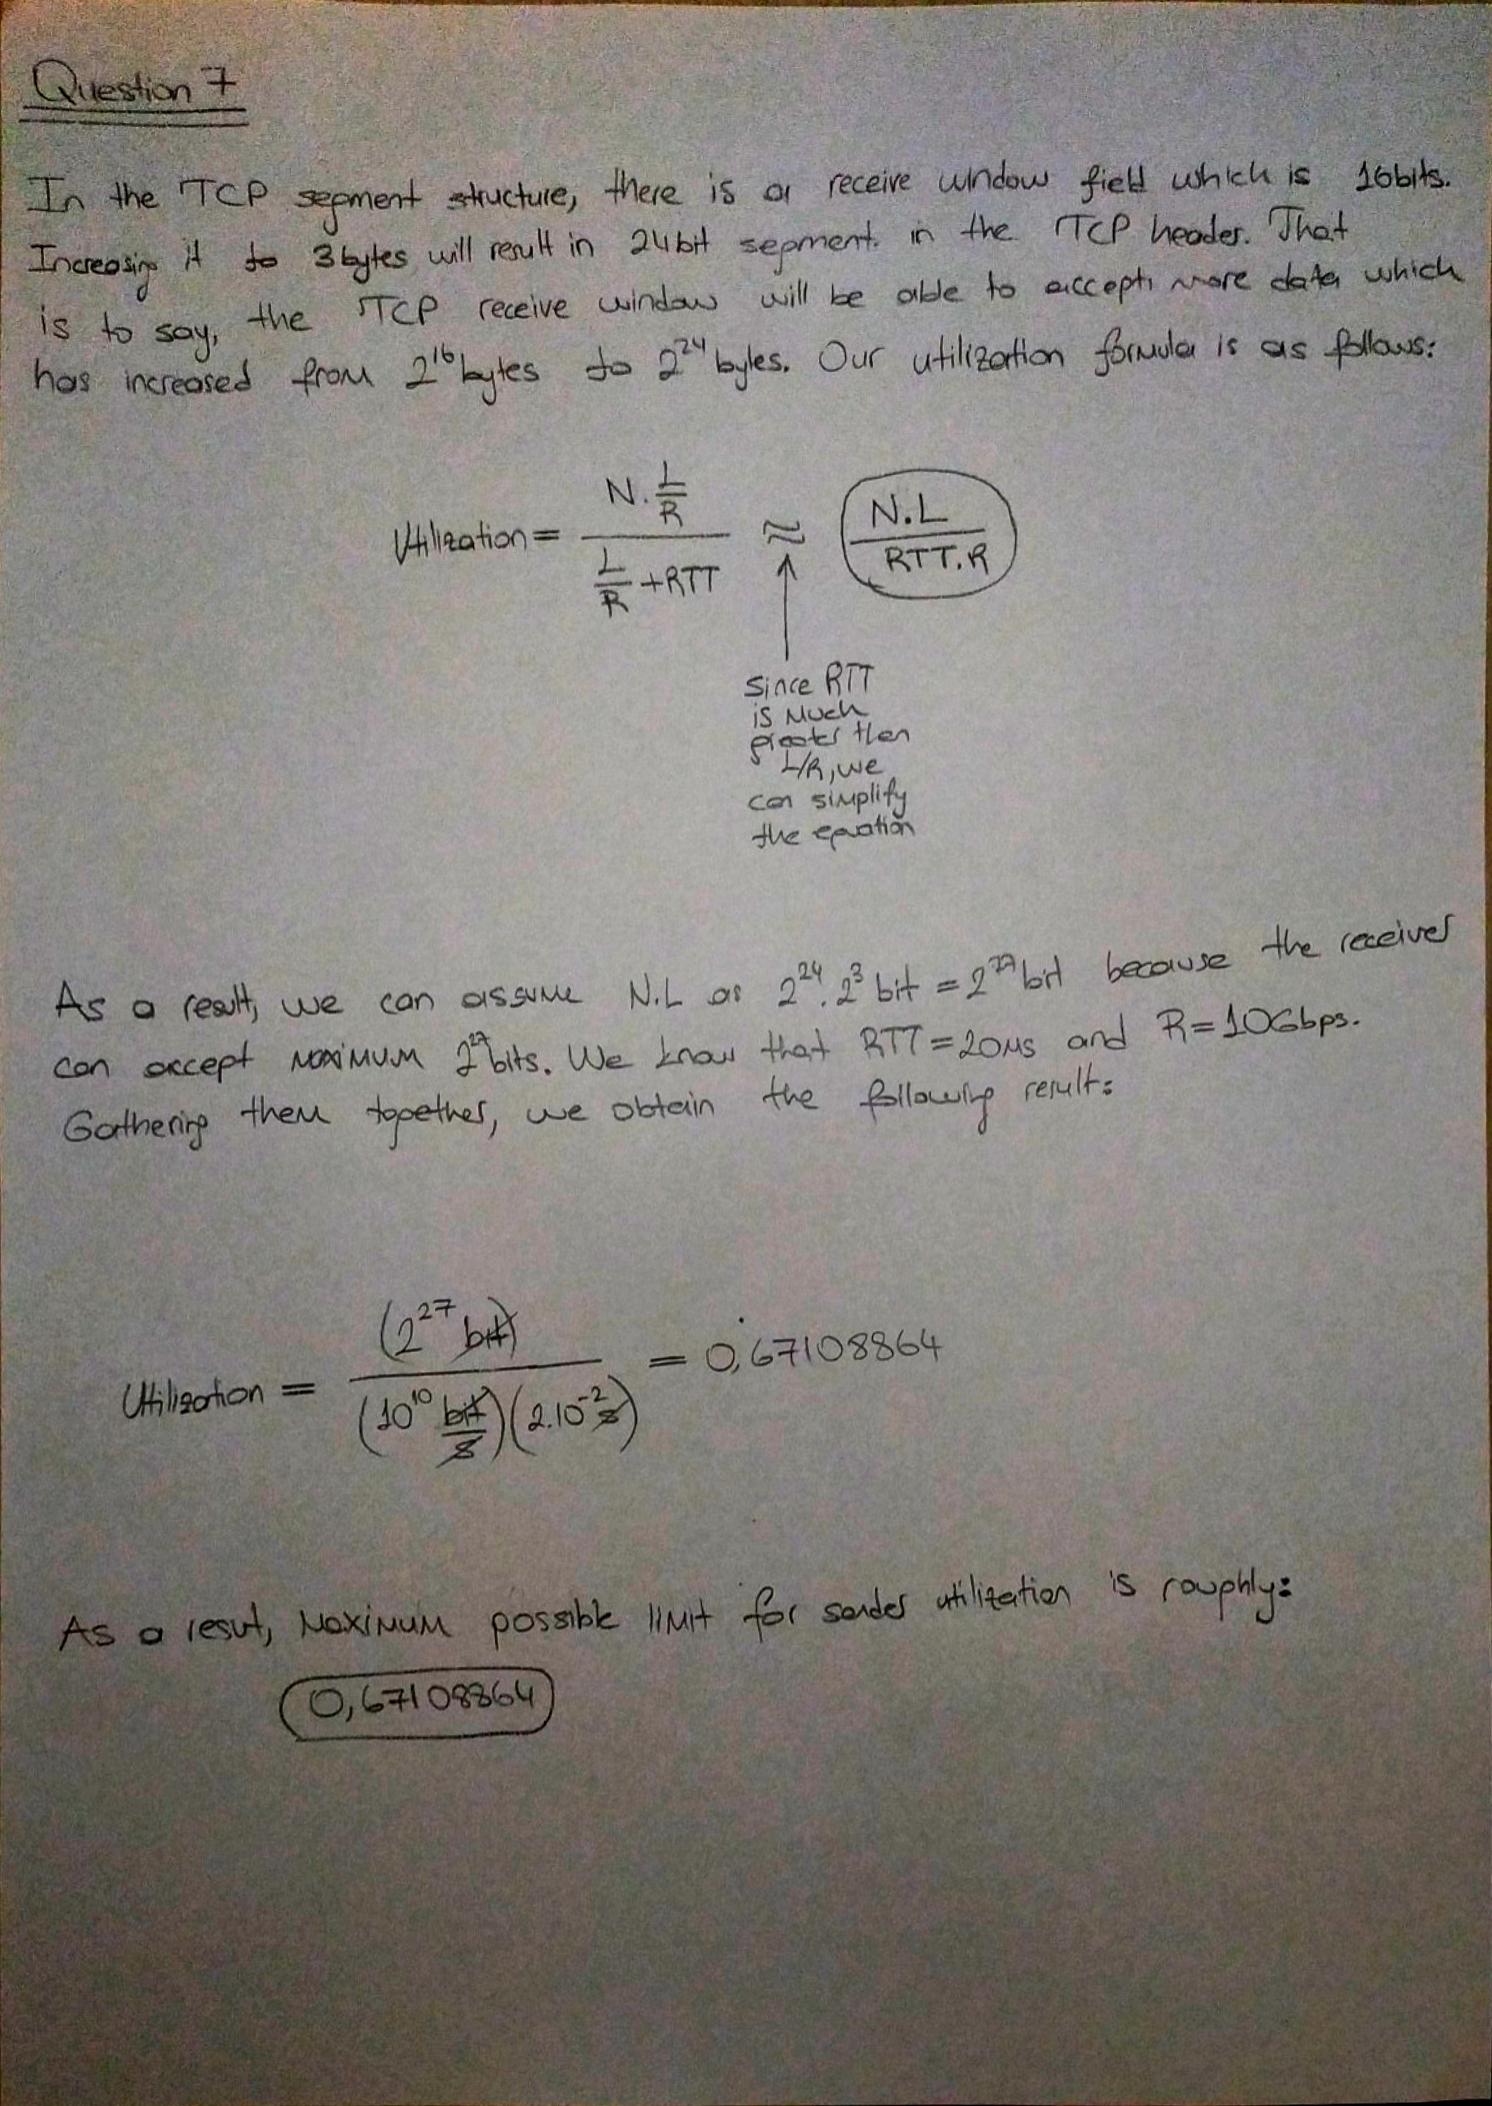 Question 7
In the TCP segment structure, there is a receive window field which is 16bits.
Increasing it to 3bytes will result in 24bit segment in the TCP header. That
is to say, the TCP receive window will be able to accept more data which
has increased from 2^16 bytes to 2^24 bytes. Our utilization formula is as follows:
Utilization = (N.L/R) / (L/R + RTT) ≈ N.L / RTT.R
since RTT
is much
greater then
L/R, we
can simplify
the equation
As a result, we can assume N.L as 2^24.2^3 bit = 2^27 bit because the receiver
can accept maximum 2^27 bits. We know that RTT=20ms and R=10Gbps.
Gathering them together, we obtain the following result:
Utilization = (2^27 bit) / (10^10 bit/s)(2.10^-2 s) = 0,67108864
As a resut, maximum possible limit for sender utilization is roughly:
0,67108864